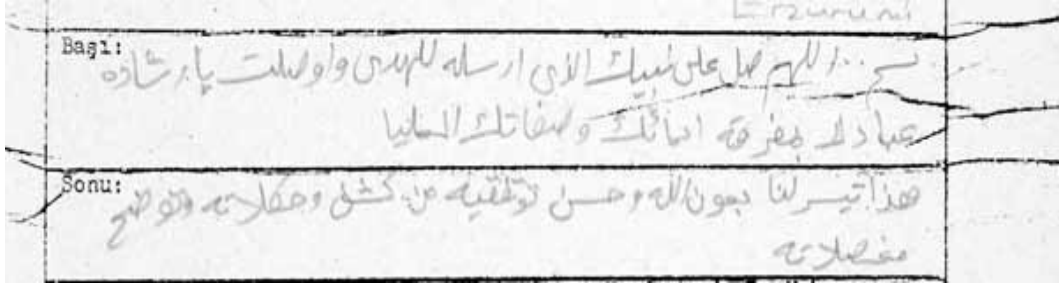 Erzurumi
Başı:
بسم ... اللهم صل على نبيك الذي ارسله للهدى واوصلت بإرشاده
عبادك بمعرفة اسمائك وصفاتك العليا
Sonu:
هذا تيسر لنا بعون الله وحسن توفقيه من كشف وحكلاته وتوضح
مفصلاته